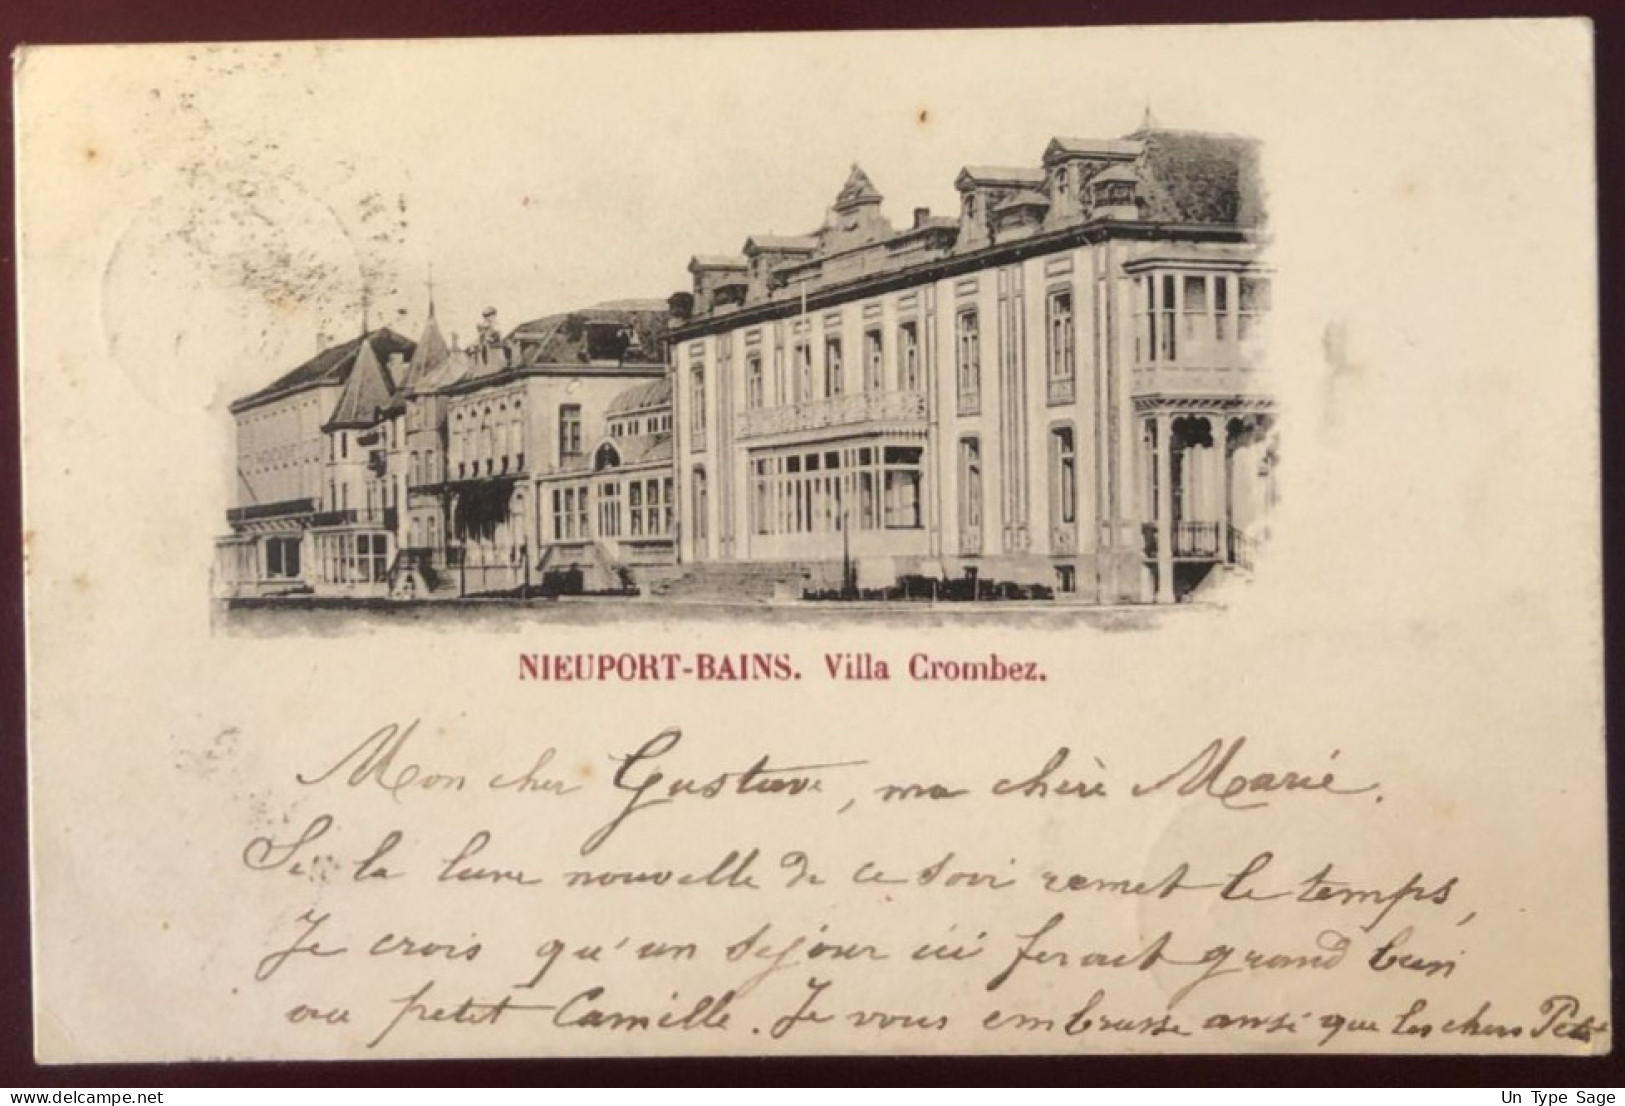 NIEUPORT-BAINS. Villa Crombez.
Mon cher Gustave, ma chère Marie.
Si la lune nouvelle de ce soir remet le temps,
Je crois qu'un séjour ici ferait grand bien
au petit Camille. Je vous embrasse ainsi que les chers Petits
delcampe.net
Un Type Sage